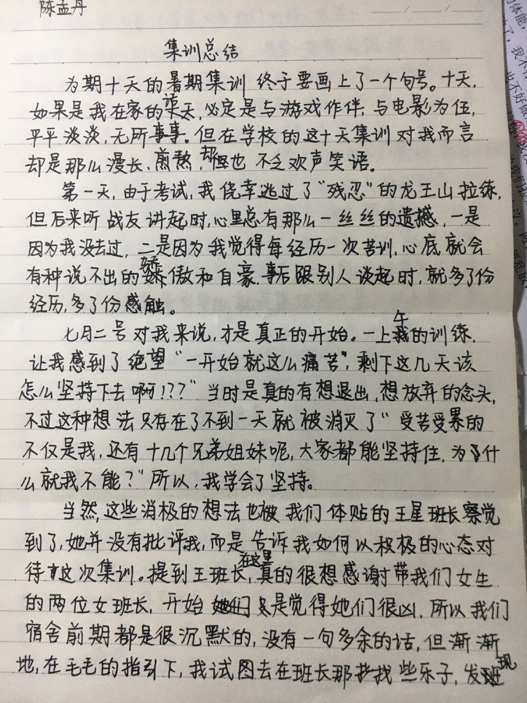 陈孟丹
集训总结
为期十天的暑期集训终于要画上了一个句号。十天,
如果是我在家的话,必定是与游戏作伴,与电影为伍,
平平淡淡,无所事事。但在学校的这十天集训对我而言
却是那么漫长、煎熬,却也不乏欢声笑语。
第一天,由于考试,我侥幸逃过了“残忍”的龙王山拉练,
但后来听战友讲起时,心里总有那么一丝丝的遗憾,一是
因为我没去过,二是因为我觉得每经历一次苦训,心底就会
有种说不出的骄傲和自豪,事后跟别人谈起时,就多了份
经历,多了份感触。
七月二号对我来说,才是真正的开始。一上午的训练,
让我感到了绝望“一开始就这么痛苦,剩下这几天该
怎么坚持下去啊!??”当时是真的有想退出,想放弃的念头,
不过这种想法只存在了不到一天就被消灭了“受苦受累的
不仅是我,还有十几个兄弟姐妹呢,大家都能坚持住,为什
么就我不能?”所以,我学会了坚持。
当然,这些消极的想法也被我们体贴的王星班长察觉
到了,她并没有批评我,而是告诉我如何以积极的心态对
待这次集训。提到王班长,在这里真的很想感谢带我们女生
的两位女班长,开始是觉得她们很凶,所以我们
宿舍前期都是很沉默的,没有一句多余的话,但渐渐
地,在毛毛的指引下,我试图去在班长那找些乐子,发现